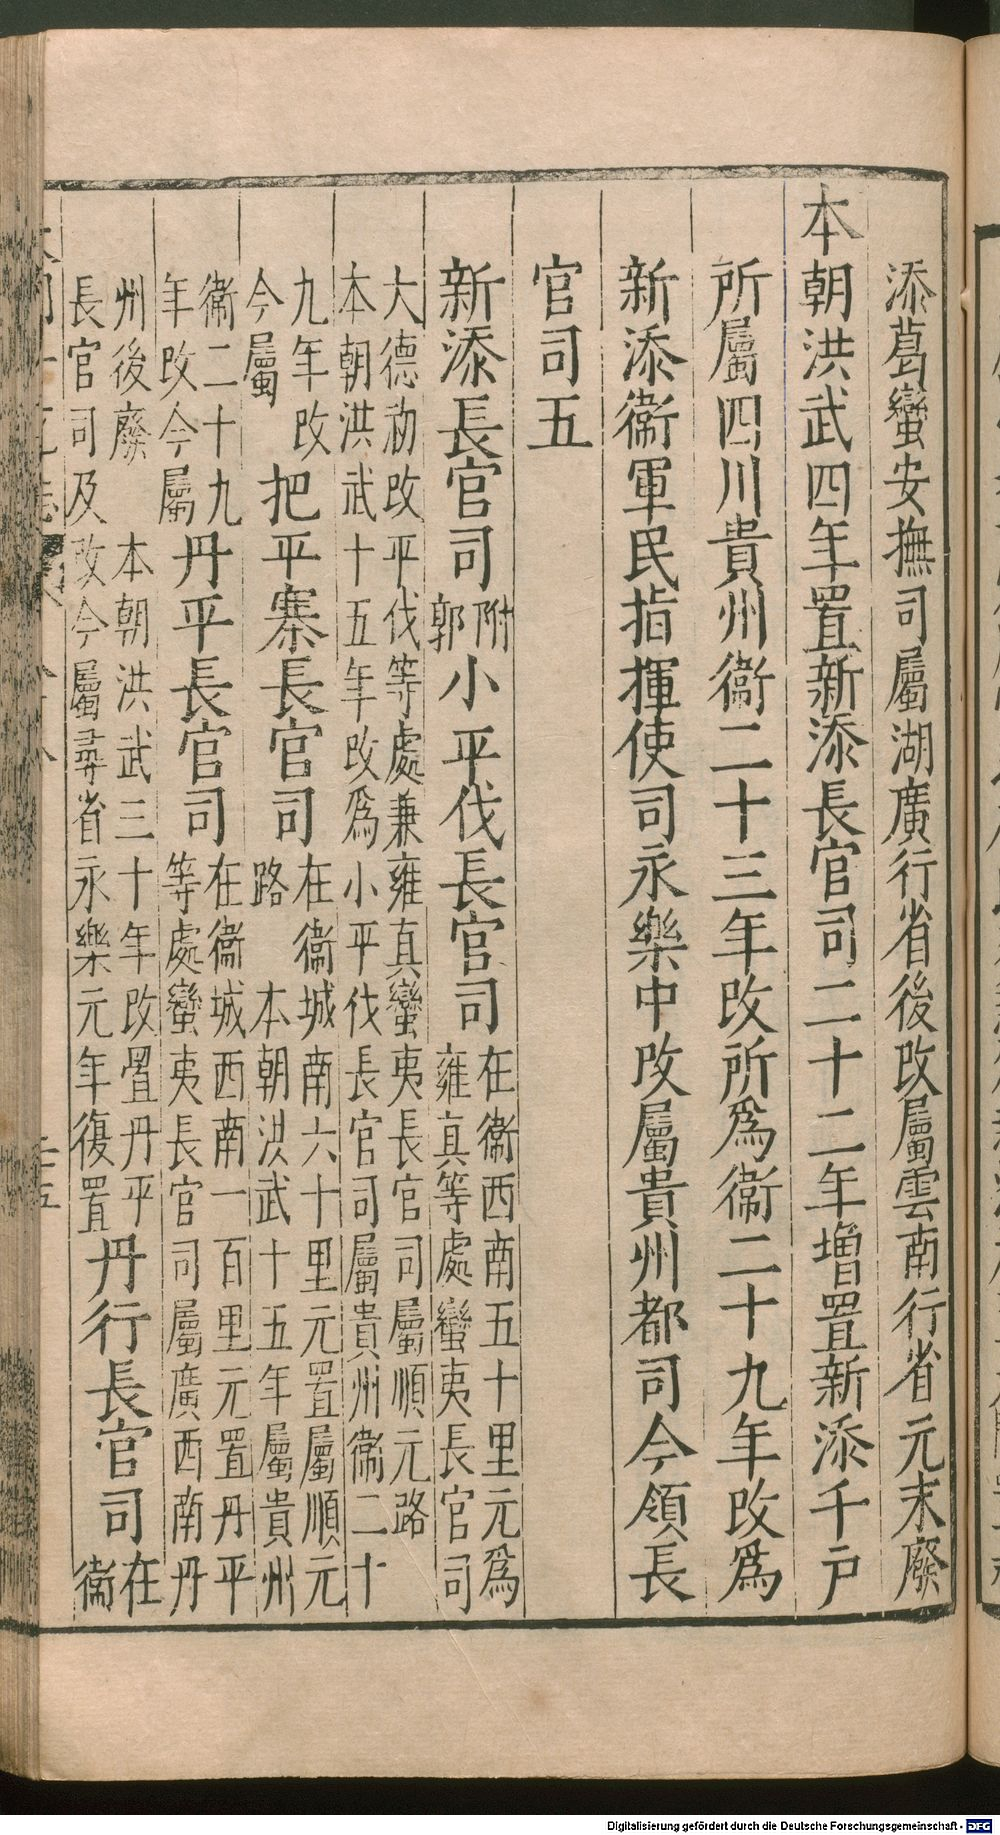 添葛蠻安撫司屬湖廣行省後改屬雲南行省元末廢
本朝洪武四年置新添長官司二十二年增置新添千戶
所屬四川貴州衞二十三年改所爲衞二十九年改爲
新添衞軍民指揮使司永樂中改屬貴州都司今領長
官司五
新添長官司附郭小平伐長官司在衞西南五十里元爲雍真等處蠻夷長官司
大德初改平伐等處兼雍真蠻夷長官司屬順元路
本朝洪武十五年改爲小平伐長官司屬貴州衞二十
九年改今屬把平寨長官司在衞城南六十里元置屬順元路本朝洪武十五年屬貴州
衞二十九年改今屬丹平長官司在衞城西南一百里元置丹平等處蠻夷長官司屬廣西南丹
州後廢本朝洪武三十年改置丹平
長官司及改今屬尋省永樂元年復置丹行長官司在衞
Digitalisierung gefördert durch die Deutsche Forschungsgemeinschaft - DFG